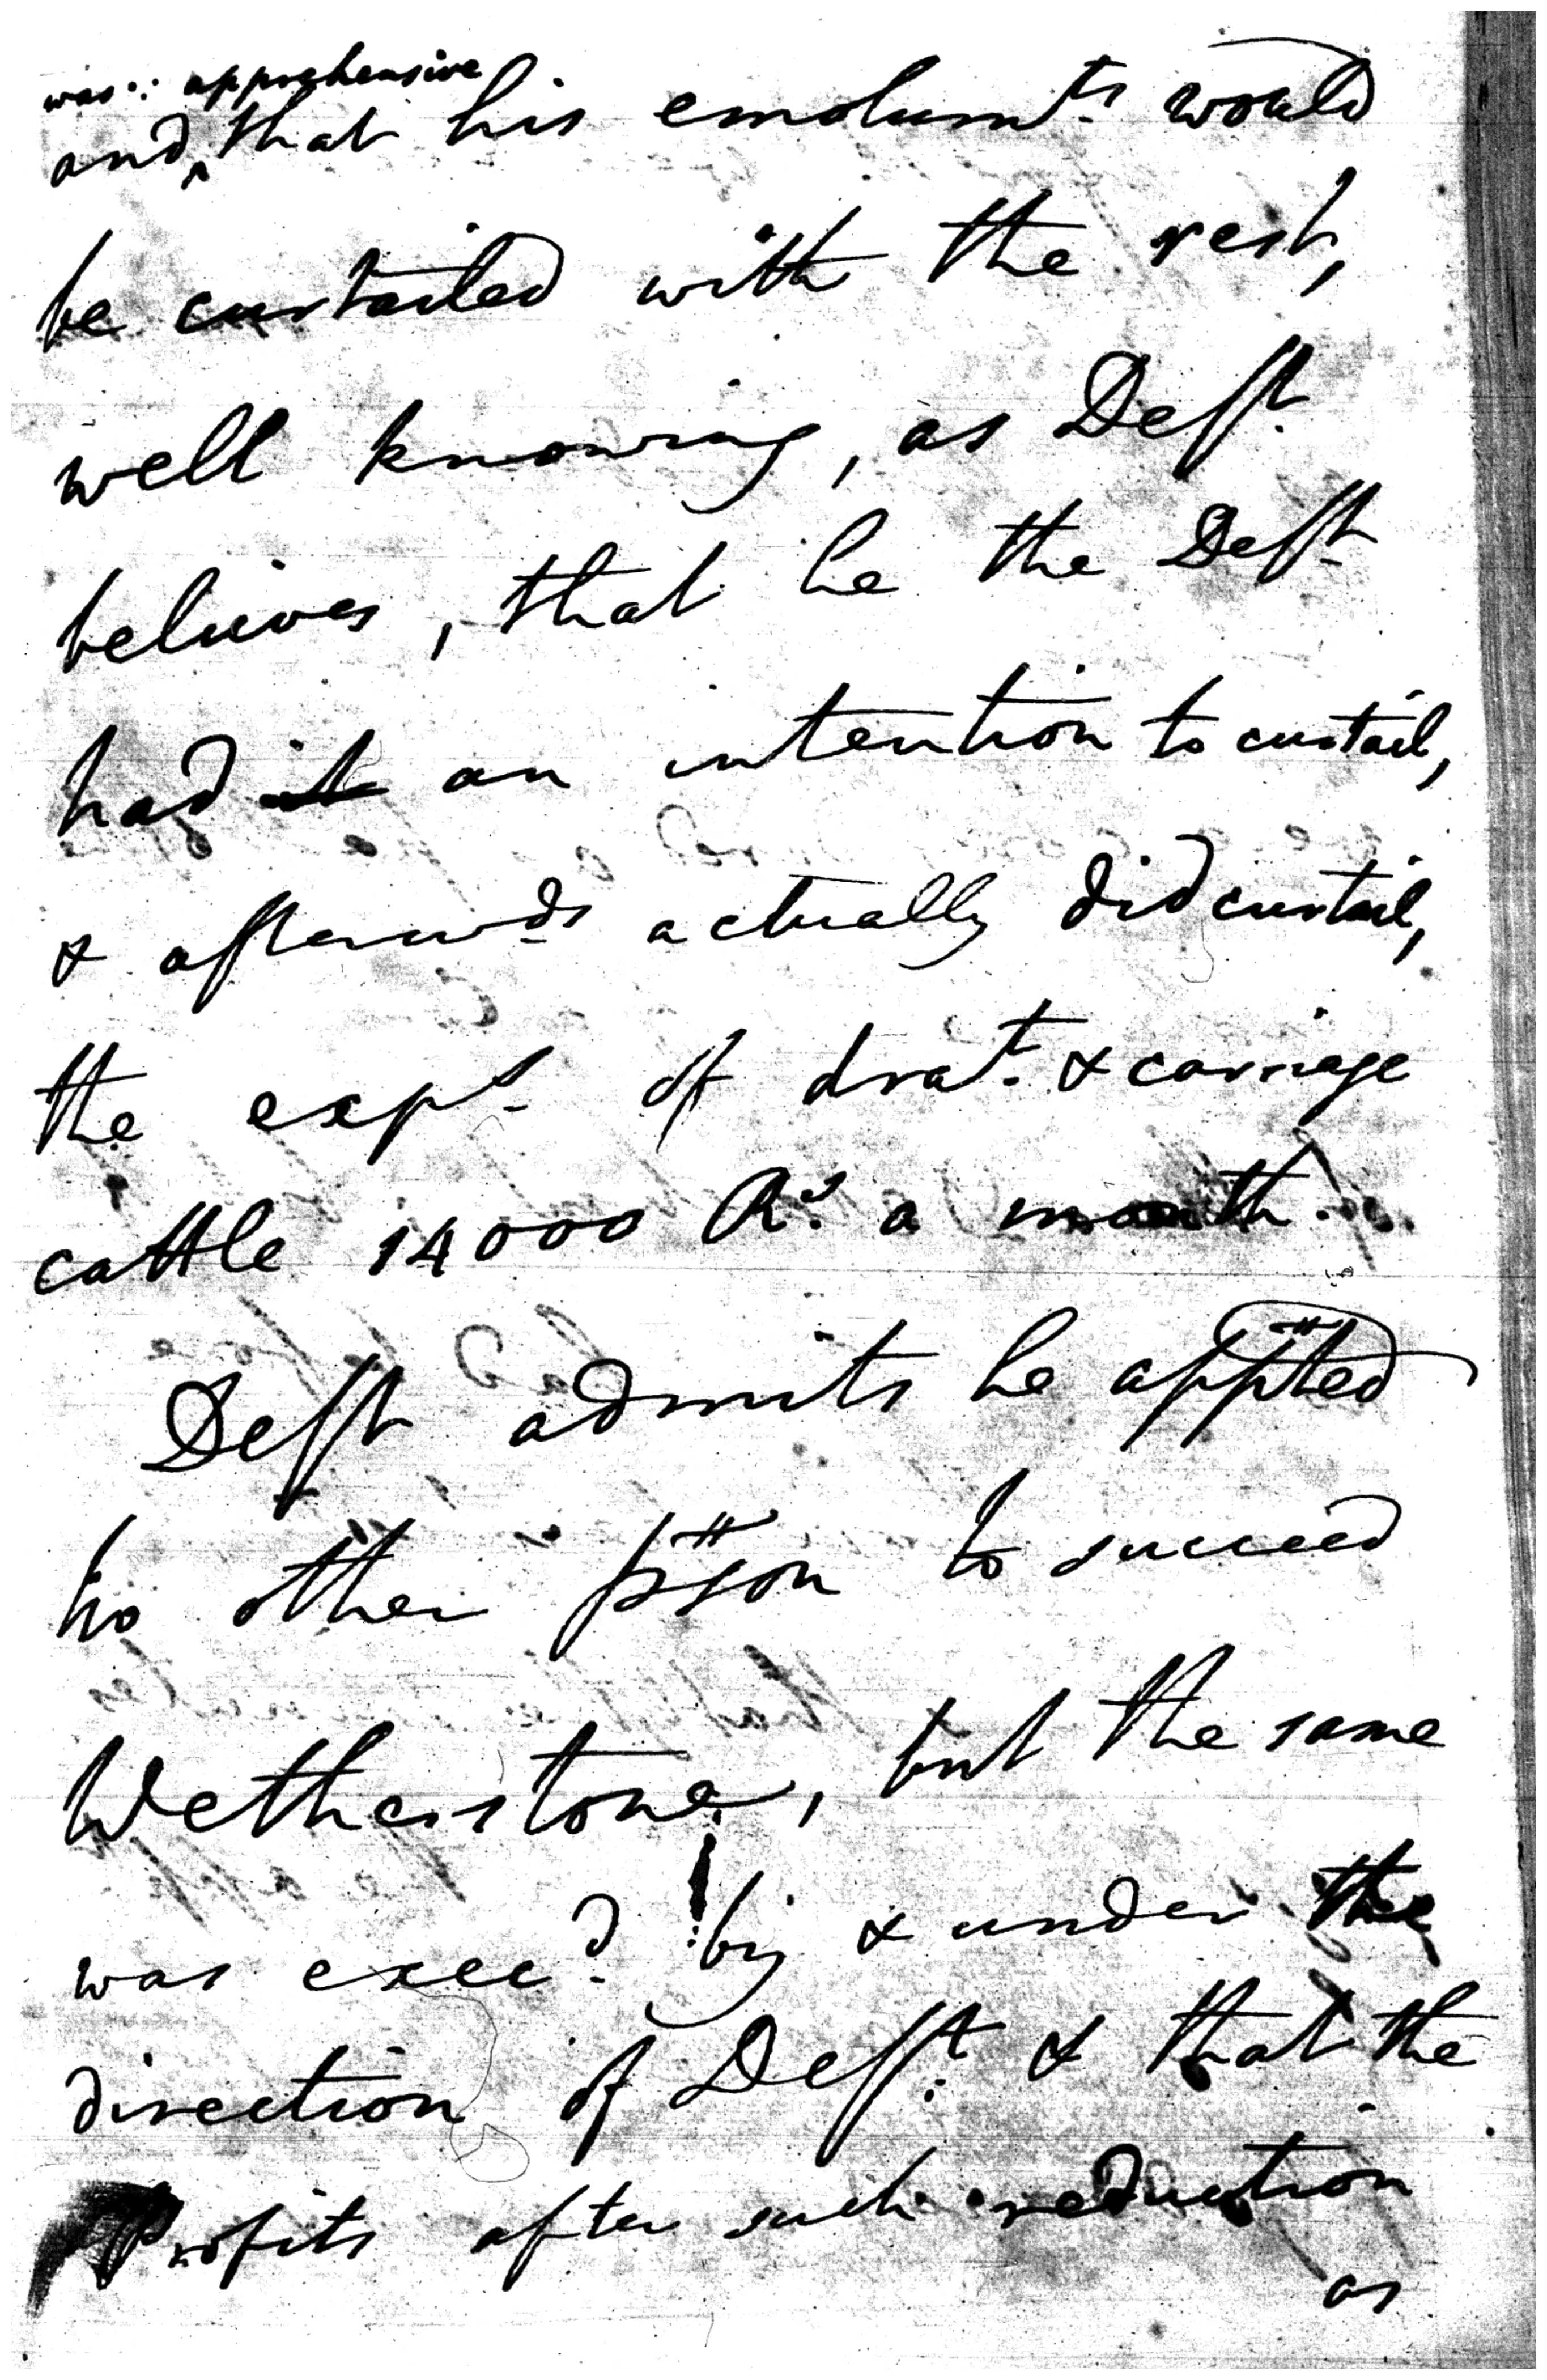 was ∴ apprehensive
and ^ that his emolumts. would
be curtailed with the rest,
well knowing, as Deft.
believes, that he the Deft
had it an intention to curtail,
& afterwds actually did curtail,
the exps of drat. & carriage
cattle 14000 Rs. a month.
Deft admits he appted
no other pson to succeed
Wetherstone, but the same
was execd. by & under the
direction of Deft. & that the
Profits after such reduction
as